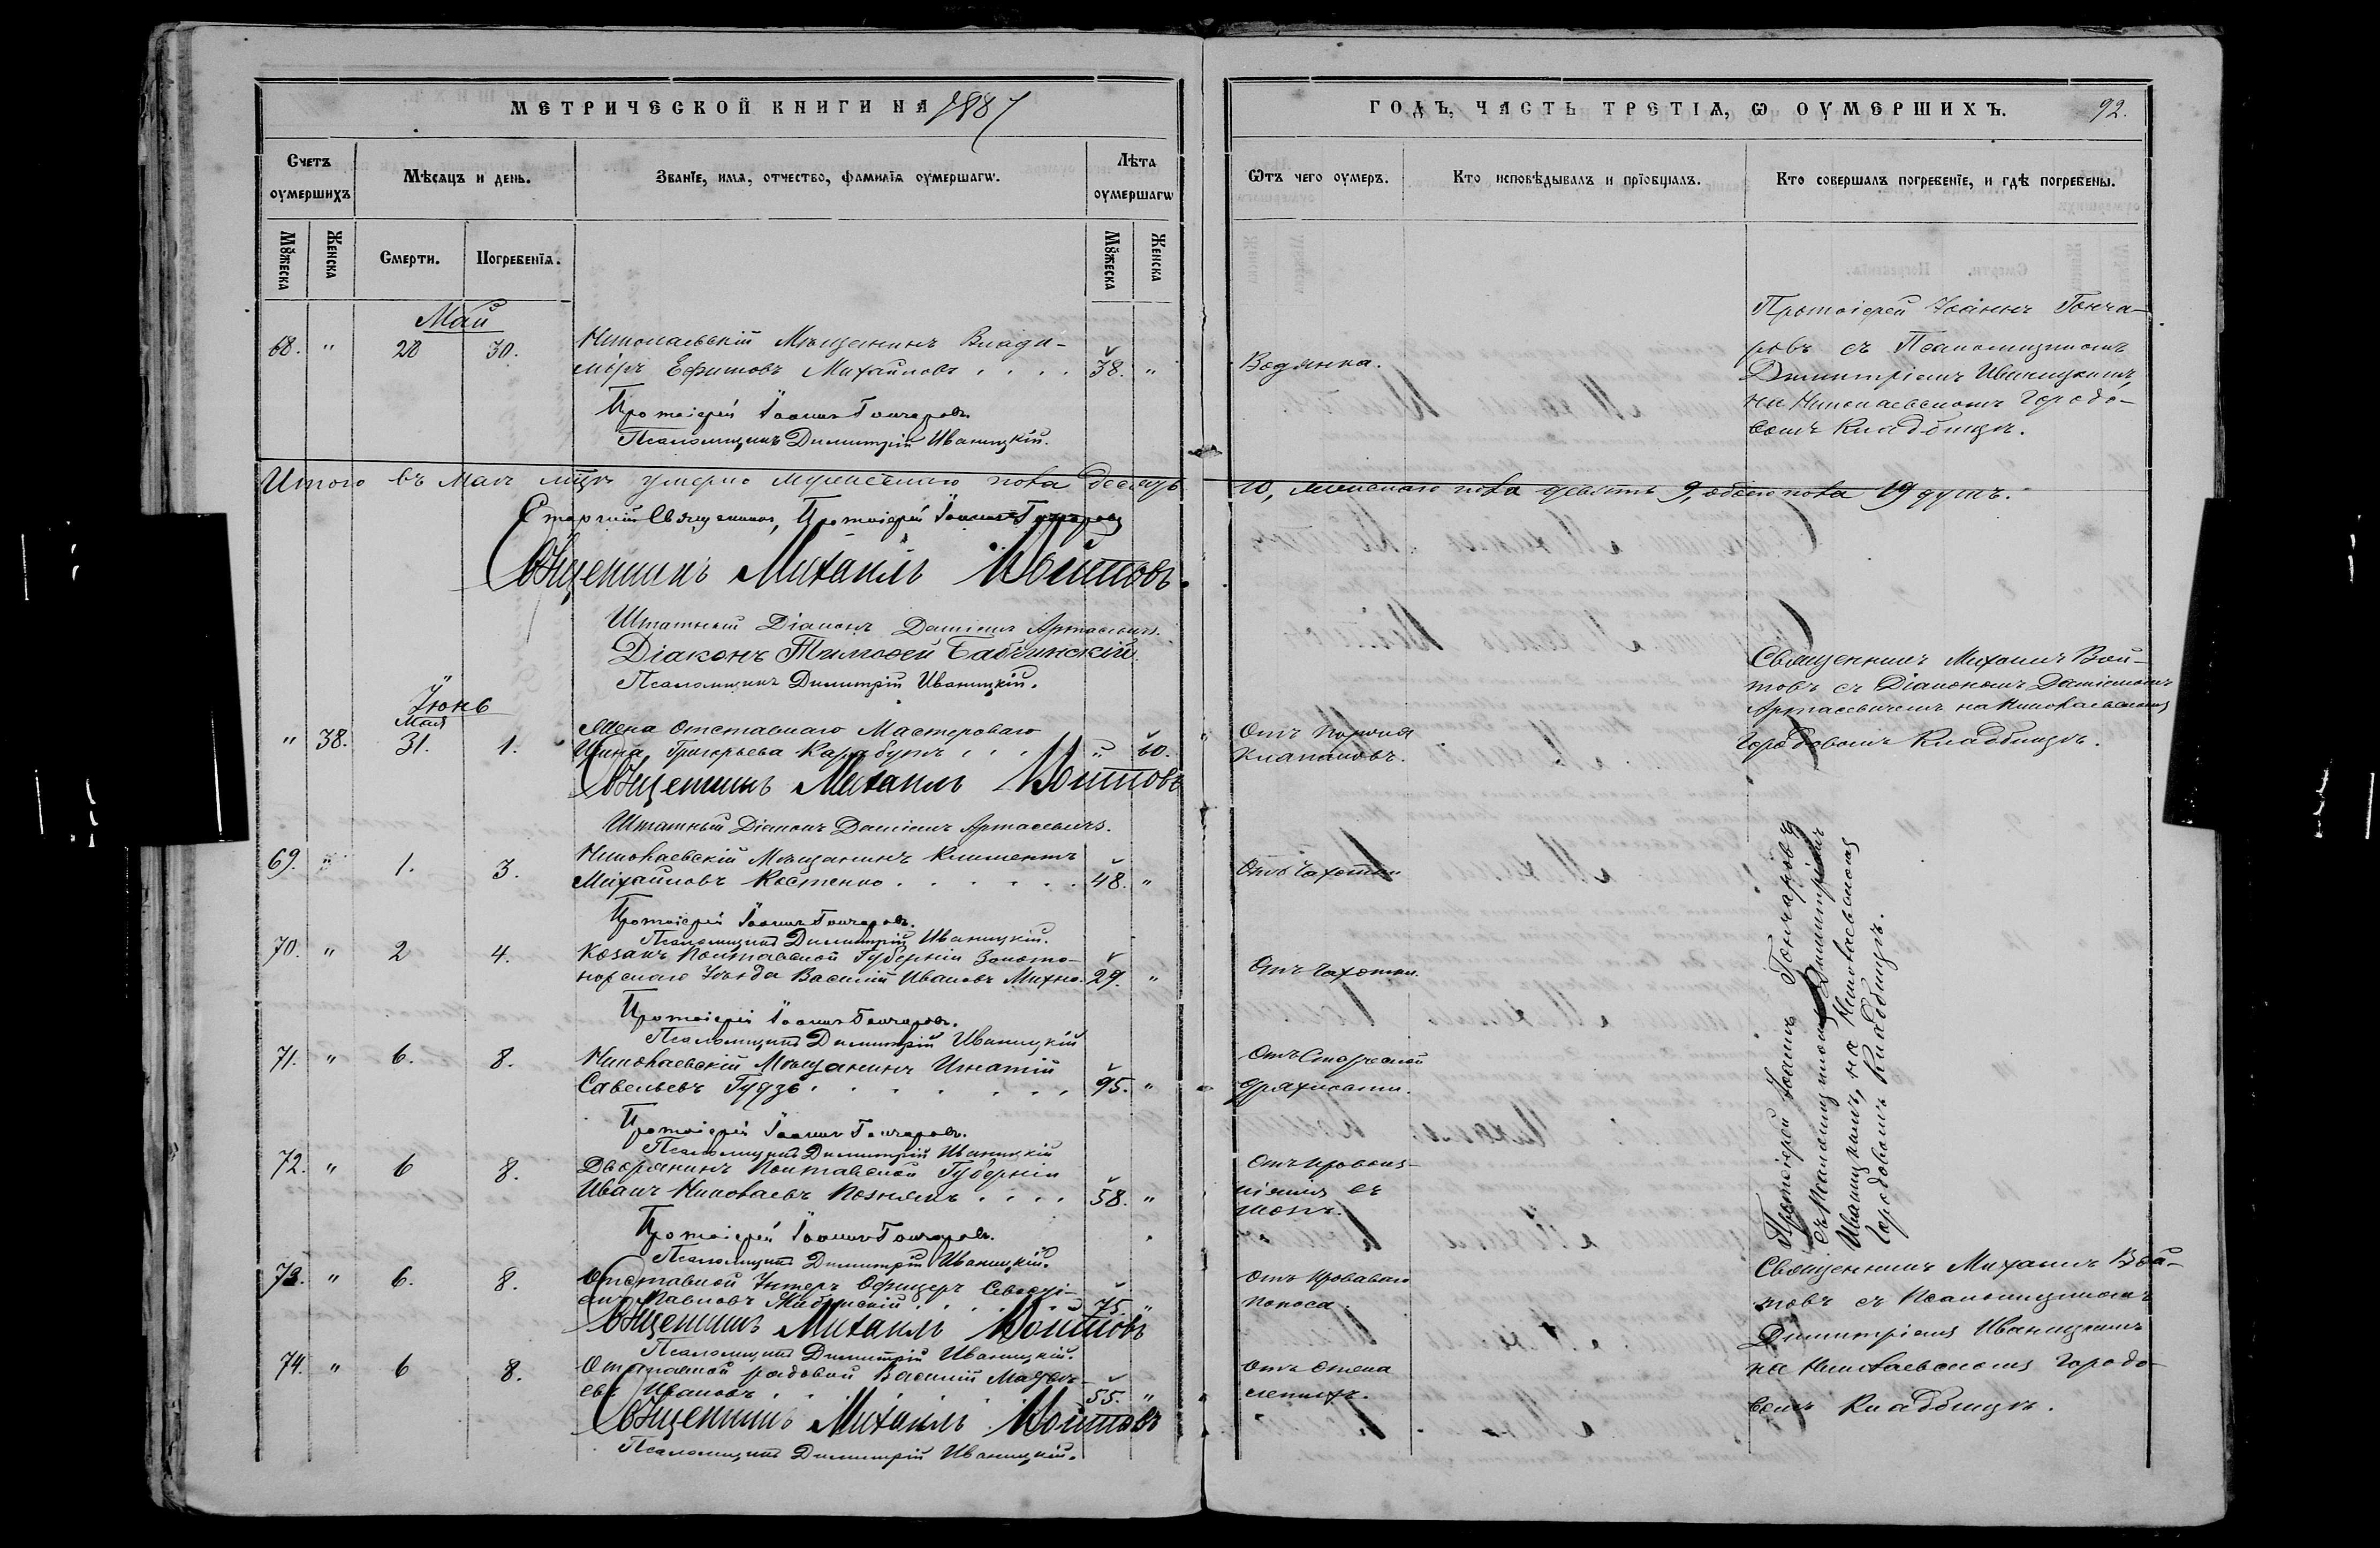 МЕТРИЧЕСКОЙ КНИГИ НА 1887
ГОДЪ, ЧАСТЬ ТРЕТІѦ, Ѡ ОУМЕРШИХЪ.
92.
Счетъ оумершихъ
Мѣсѧцъ и день.
Званїе, имѧ, отчество, фамилїѧ оумершагѡ.
Лѣта оумершагѡ
Ѿтъ чего оумеръ.
Кто исповѣдывалъ и прїобщалъ.
Кто совершалъ погребенїе, и гдѣ погребены.
Мꙋжеска
Женска
Смерти.
Погребенїѧ.
Мꙋжеска
Женска
Май
68. " 28 30.
Николаевскій Мѣщанинъ Влади-
міръ Ефимовъ Михайловъ . . . . 38. "
Водянка.
Протоіерей Іоаннъ Гонча-
ровъ съ Псаломщикомъ
Димитріемъ Иваницкимъ,
на Николаевскомъ Городо-
вомъ Кладбищѣ.
Протоіерей Іоаннъ Гончаровъ.
Псаломщикъ Димитрій Иваницкій.
Итого въ Маѣ мцѣ умерло мужескаго пола десять
10, женскаго пола девять 9, обоего пола 19 душъ.
Старшій Священникъ, Протоіерей Іоаннъ Гончаровъ
Священникъ Михаилъ Войтовъ.
Штатный Діаконъ Даміанъ Артасевичъ.
Діаконъ Тимоѳей Бабчинскій.
Псаломщикъ Димитрій Иваницкій.
Іюнь
Мая
" 38. 31. 1.
Жена Отставнаго Мастероваго
Григорьева Карабутъ . . . " 60.
Отъ Порока
Клапановъ.
Священникъ Михаилъ Вой-
товъ съ Діакономъ Даміаномъ
Артасевичемъ на Николаевскомъ
Городовомъ Кладбищѣ.
Священникъ Михаилъ Войтовъ
Штатный Діаконъ Даміанъ Артасевичъ.
69. " 1. 3.
Николаевскій Мѣщанинъ Климентъ
Михайловъ Костенко . . . . . . 48. "
Отъ Чахотки
Протоіерей Іоаннъ Гончаровъ.
Псаломщикъ Димитрій Иваницкій.
70. " 2 4.
Козакъ Полтавской Губерніи Золото-
ношскаго Уѣзда Василій Ивановъ Михно. 29. "
Отъ Чахотки.
Протоіерей Іоаннъ Гончаровъ.
Псаломщикъ Димитрій Иваницкій
71. " 6. 8.
Николаевскій Мѣщанинъ Игнатій
Савельевъ Гудзь . . . . . . . 95. "
Отъ Старческой
дряхлости.
Протоіерей Іоаннъ Гончаровъ.
Псаломщикъ Димитрій Иваницкій
72. " 6 8.
Дворянинъ Полтавской Губерніи
Иванъ Николаевъ Познякъ . . . . 58. "
Отъ кровоиз-
ліянія въ
мозгъ.
Протоіерей Іоаннъ Гончаровъ.
Псаломщикъ Димитрій Иваницкій.
Протоіерей Іоаннъ Гончаровъ
съ Псаломщикомъ Димитріемъ
Иваницкимъ, на Николаевскомъ
Городовомъ Кладбищѣ.
73. " 6. 8.
Отставной Унтеръ Офицеръ
Павловъ . . . . 75. "
Отъ Кроваваго
поноса.
Священникъ Михаилъ Вой-
товъ съ Псаломщикомъ
Димитріемъ Иваницкимъ
на Николаевскомъ Городо-
вомъ Кладбищѣ.
Священникъ Михаилъ Войтовъ
Псаломщикъ Димитрій Иваницкій.
74. " 6 8.
Отставной рядовой Василій
Ивановъ . . . 55. "
Отъ отека
легкихъ.
Священникъ Михаилъ Войтовъ
Псаломщикъ Димитрій Иваницкій.